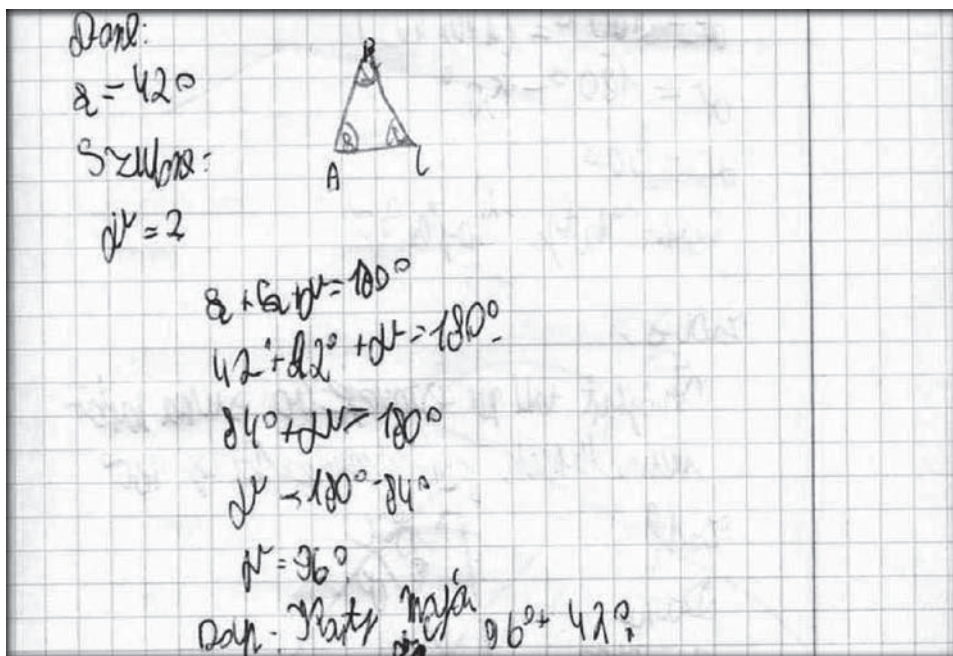 Dane:
B
α = 42°
Szukane:
A C
γ = ?
α + α + γ = 180°
42° + 42° + γ = 180°
84° + γ = 180°
γ = 180° - 84°
γ = 96°
Odp: Kąty mają 96° + 42°